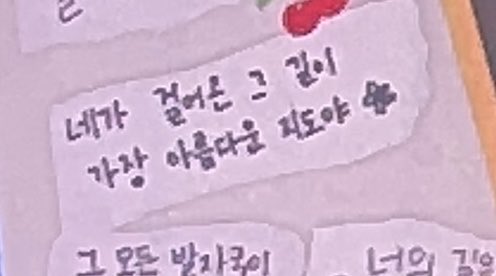 네가 걸어온 그 길이
가장 아름다운 지도야
그 모든 발자국이
너의 길은